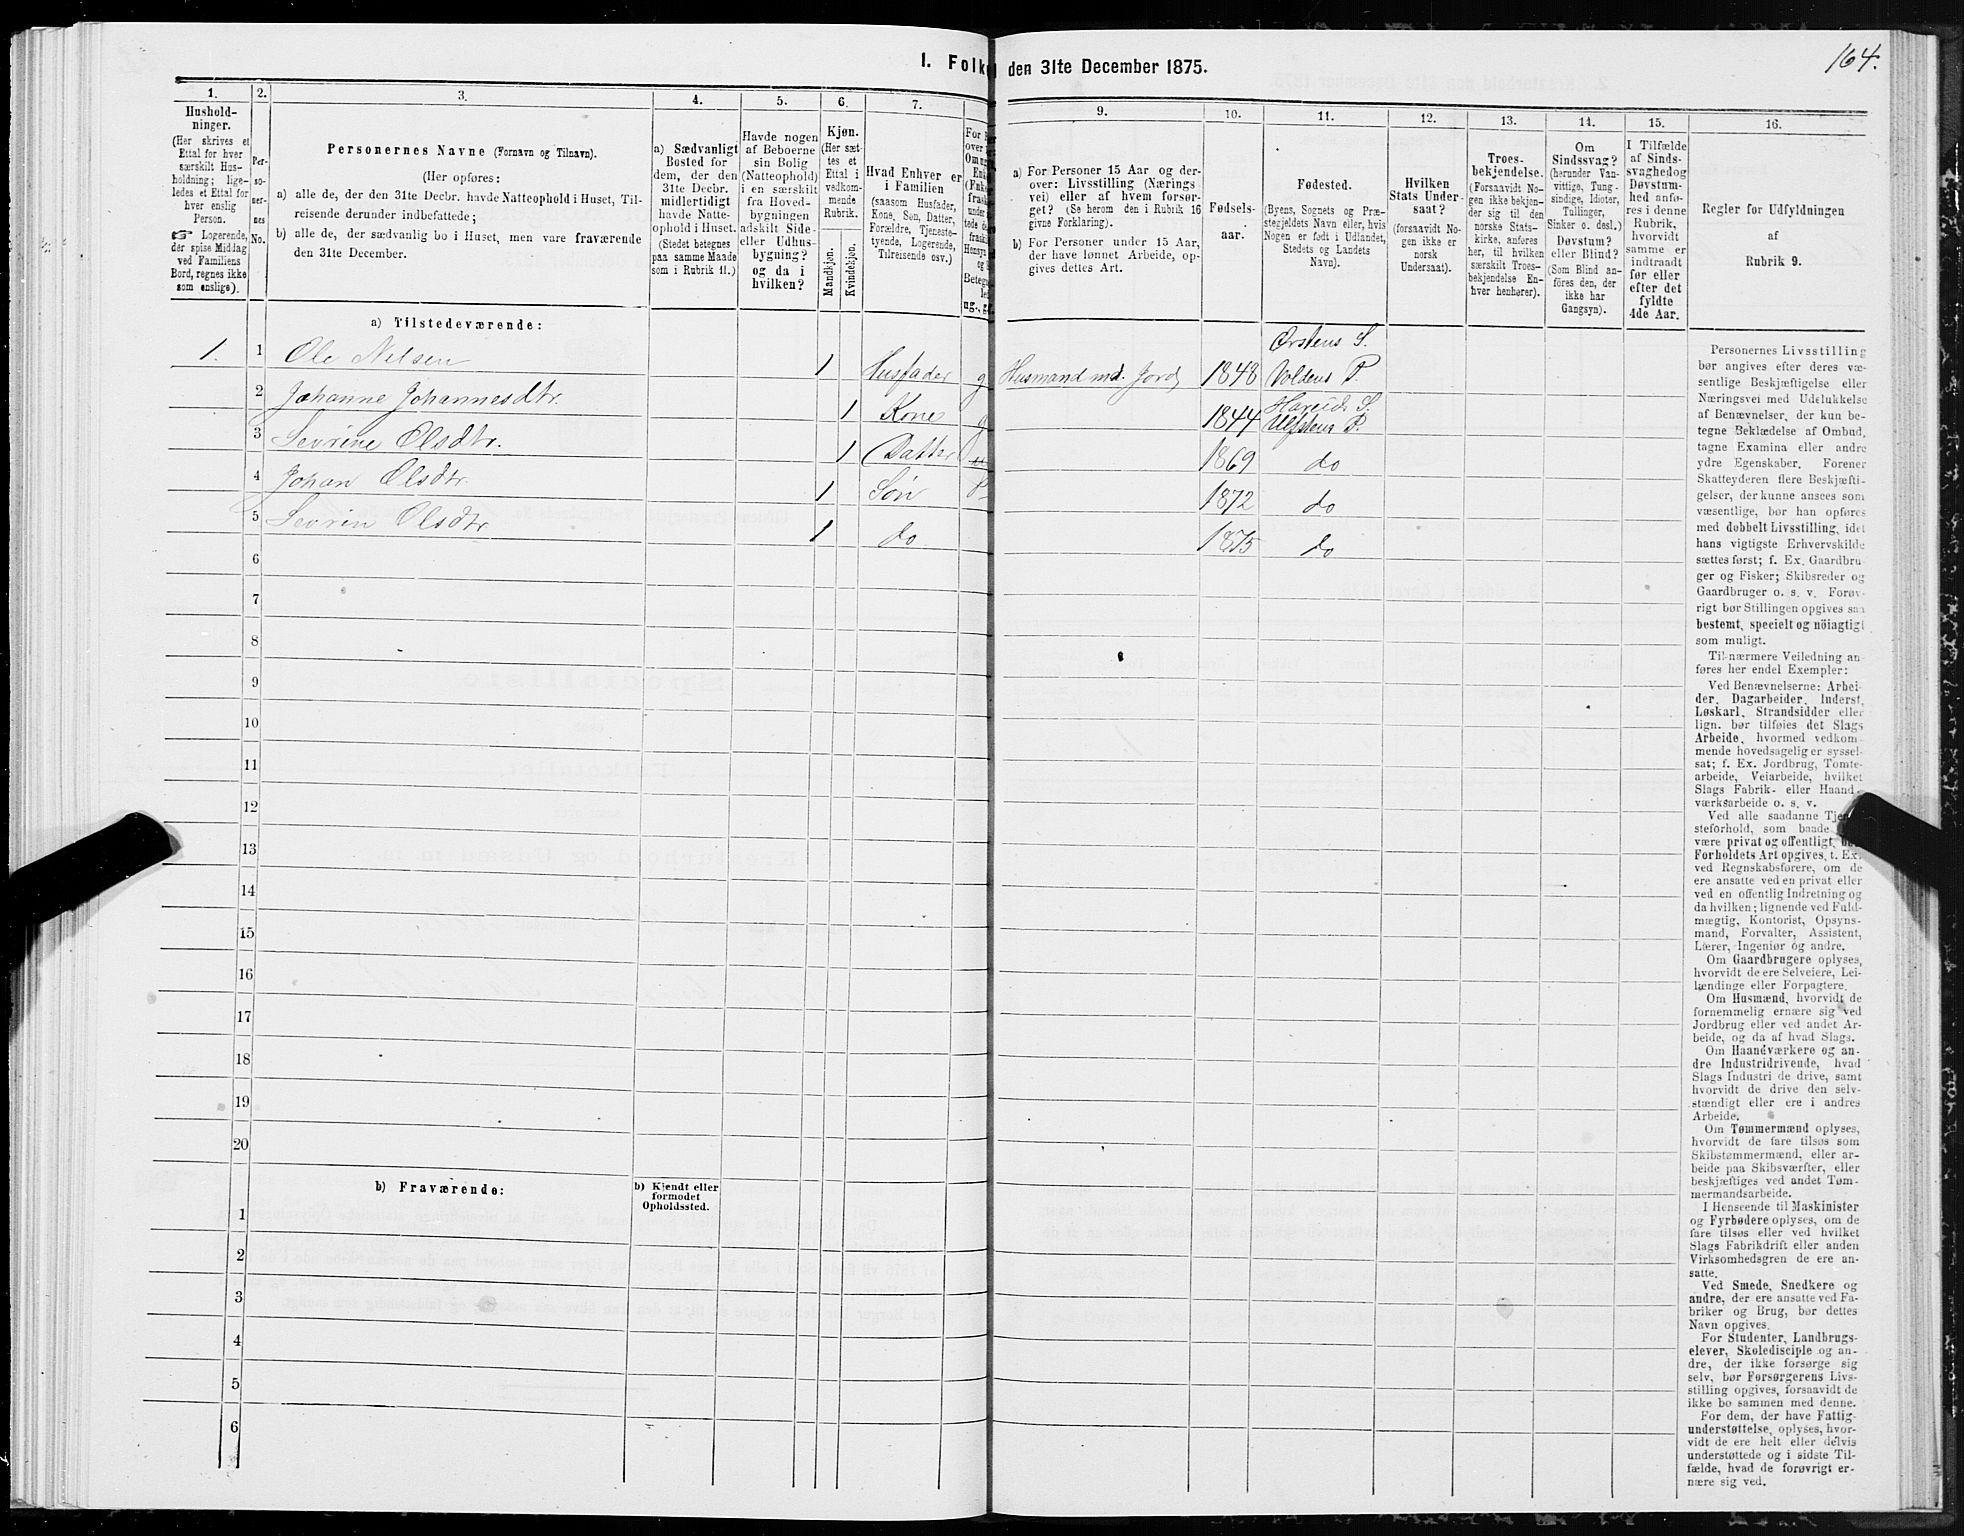 164.
I. Folke
den 31te December 1875.
1.
2.
3.
4.
5.
6.
7.
9.
10.
11.
12.
13.
14.
15.
16.
Hushold-
ninger.
(Her skrives et
Ettal for hver
særskilt Hus-
holdning; lige-
ledes et Ettal for
hver enslig
Person.
☞ Logerende,
der spise Middag
ved Familiens
Bord, regnes ikke
som enslige).
Per-
so-
ner-
nes
No.
Personernes Navne (Fornavn og Tilnavn).
(Her opføres:
a) alle de, der den 31te Decbr. havde Natteophold i Huset, Til-
reisende derunder indbefattede;
b) alle de, der sædvanlig bo i Huset, men vare fraværende
den 31te December.
a) Sædvanligt
Bosted for
dem, der den
31te Decbr.
midlertidigt
havde Natte-
ophold i Huset.
(Stedet betegnes
paa samme Maade
som i Rubrik 11.)
Havde nogen
af Beboerne
sin Bolig
(Natteophold)
i en særskilt
fra Hoved-
bygningen
adskilt Side-
eller Udhus-
bygning?
og da i
hvilken?
Kjøn.
(Her sæt-
tes et
Ettal i
vedkom-
mende
Rubrik.
Mandkjøn.
Kvindekjøn.
Hvad Enhver er
i Familien
(saasom Husfader,
Kone, Søn, Datter,
Forældre, Tjeneste-
tyende, Logerende,
Tilreisende osv.)
a) For Personer 15 Aar og der-
over: Livsstilling (Nærings-
vei) eller af hvem forsør-
get? (Se herom den i Rubrik 16
givne Forklaring).
b) For Personer under 15 Aar,
der have lønnet Arbeide, op-
gives dettes Art.
Fødsels-
aar.
Fødested.
(Byens, Sognets og Præ-
stegjeldets Navn eller, hvis
Nogen er født i Udlandet,
Stedets og Landets
Navn).
Hvilken
Stats Under-
saat?
(forsaavidt No-
gen ikke er
norsk
Undersaat).
Troes-
bekjendelse.
(Forsaavidt No-
gen ikke bekjen-
der sig til den
norske Stats-
kirke, anføres
her, til hvilken
særskilt Troes-
bekjendelse En-
hver henhører).
Om
Sindssvag?
(herunder Van-
vittige, Tung-
sindige, Idioter,
Tullinger,
Sinker o. desl.)
Døvstum?
eller Blind?
(Som Blind an-
føres den, der
ikke har
Gangsyn).
I Tilfælde
af Sinds-
svaghed og
Døvstum-
hed anfø-
res i denne
Rubrik,
hvorvidt
samme er
indtraadt
før eller
efter det
fyldte
4de Aar.
Regler for Udfyldningen
af
Rubrik 9.
a) Tilstedeværende:
1. 1 Ole Nilsen 1 Husfader g Husmand md. Jord 1848 Ørstens S. Voldens P.
2 Johanne Johannesdtr. 1 Kone g 1844 Hareids S. Ulfstens P.
3 Sevrine Olsdtr. 1 Datter 1869 do
4 Johan Olsdtr. 1 Søn 1872 do
5 Sevrin Olsdtr. 1 do 1875 do
6
7
8
9
10
11
12
13
14
15
16
17
18
19
20
b) Fraværende:
b) Kjendt eller
formodet
Opholdssted.
1
2
3
4
5
6
Personernes Livsstilling
bør angives efter deres væ-
sentlige Beskjæftigelse eller
Næringsvei med Udelukkelse
af Benævnelser, der kun be-
tegne Beklædelse af Ombud,
tagne Examina eller andre
ydre Egenskaber. Forener
Skatteyderen flere Beskjæfti-
gelser, der kunne ansees som
væsentlige, bør han opføres
med dobbelt Livsstilling, idet
hans vigtigste Erhvervskilde
sættes først; f. Ex. Gaardbru-
ger og Fisker; Skibsreder og
Gaardbruger o. s. v. Forøv-
rigt bør Stillingen opgives saa
bestemt, specielt og nöiagtigt
som muligt.
Til nærmere Veiledning an-
føres her endel Exempler:
Ved Benævnelserne: Arbei-
der, Dagarbeider, Inderst,
Løskarl, Strandsidder eller
lign. bør tilføies det Slags
Arbeide, hvormed vedkom-
mende hovedsagelig er syssel-
sat; f. Ex. Jordbrug, Tomte-
arbeide, Veiarbeide, hvilket
Slags Fabrik- eller Haand-
værksarbeide o. s. v.
Ved alle saadanne Tjen-
steforhold, som baade
være privat og offentligt,
Forholdets Art opgives, t. Ex.
ved Regnskabsførere, om de
ere ansatte ved en privat eller
ved en offentlig Indretning og
da hvilken; lignende ved Fuld-
mægtig, Kontorist, Opsyns-
mand, Forvalter, Assistent,
Lærer, Ingeniør og andre.
Om Gaardbrugere oplyses,
hvorvidt de ere Selveiere, Lei-
lændinge eller Forpagtere.
Om Husmænd, hvorvidt de
fornemmelig ernære sig ved
Jordbrug eller ved andet Ar-
beide, og da af hvad Slags.
Om Haandværkere og an-
dre Industridrivende, hvad
Slags Industri de drive, samt
hvorvidt de drive den selv-
stændigt eller ere i andres
Arbeide.
Om Tømmermænd oplyses,
hvorvidt de fare tilsøs som
Skibstømmermænd, eller ar-
beide paa Skibsværfter, eller
beskjæftiges ved andet Tøm-
mermandsarbeide.
I Henseende til Maskinister
og Fyrbødere oplyses, om de
fare tilsøs eller ved hvilket
Slags Fabrikdrift eller anden
Virksomhedsgren de ere an-
satte.
Ved Smede, Snedkere og
andre, der ere ansatte ved Fa-
briker og Brug, bør dettes
Navn opgives.
For Studenter, Landbrugs-
elever, Skoledisciple og an-
dre, der ikke forsørge sig
selv, bør Forsørgerens Livs-
stilling opgives, forsaavidt de
ikke bo sammen med denne.
For dem, der have Fattig-
understøttelse, oplyses, hvor-
vidt de ere helt eller delvis
understøttede og i sidste Til-
fælde, hvad de forøvrigt er-
nære sig ved.